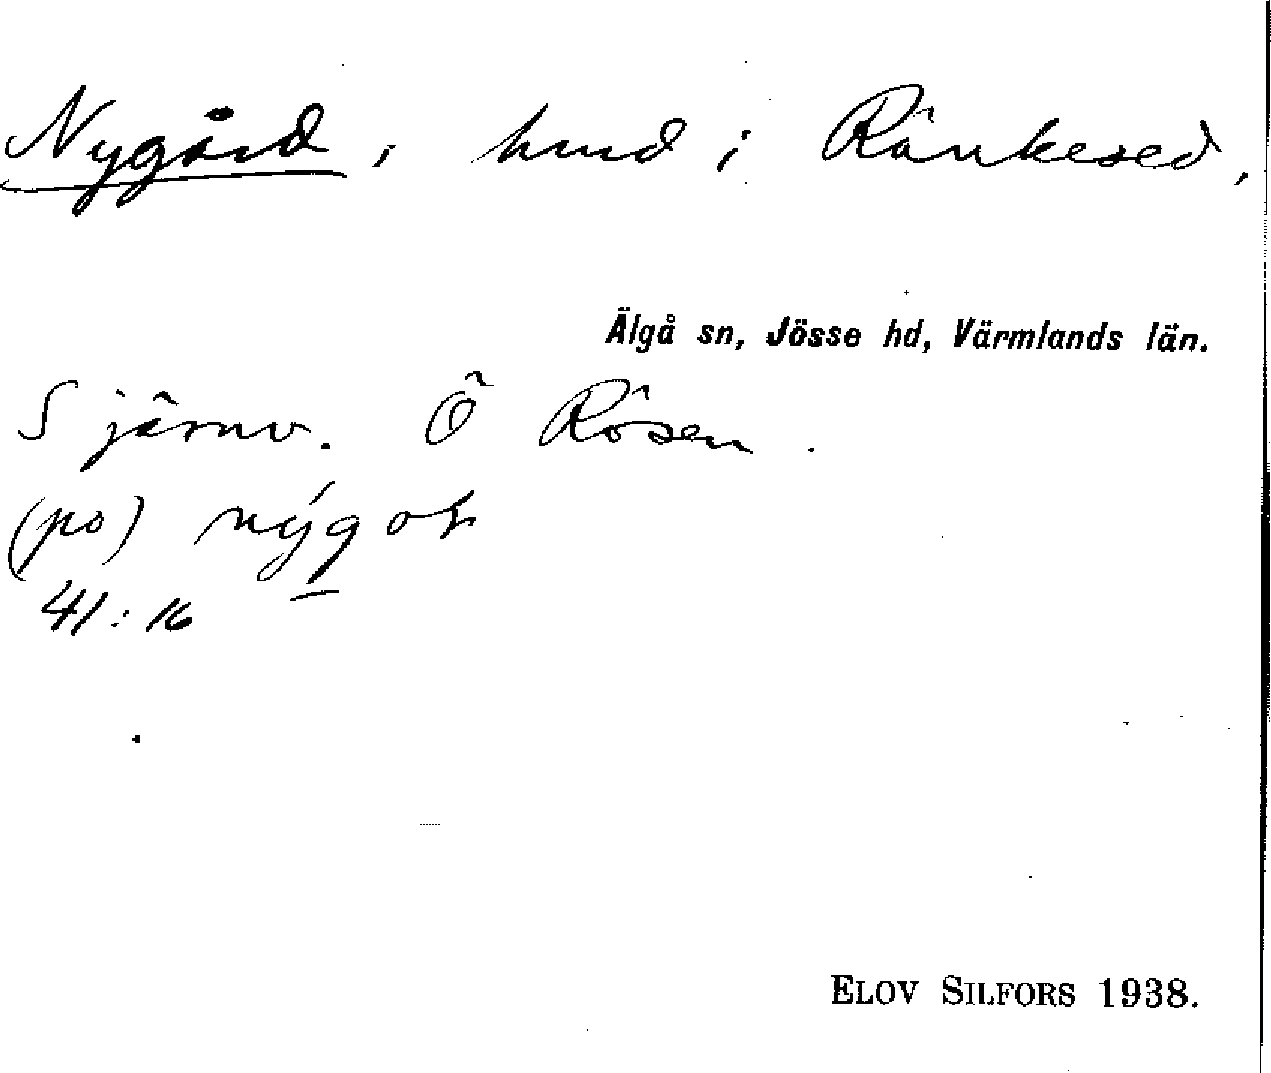 Nygård, hmd i Ränkesed,
Älgå sn, Jösse hd, Värmlands län.
S järnv. Ö Rösen.
(po) nýgoḷ
41:16
ELOV SILFORS 1938.